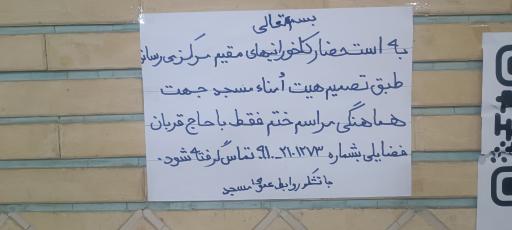 بسمه تعالی
به استحضار کاخورانیهای مقیم مرکز می رساند
طبق تصمیم هیت اُمناء مسجد جهت
هماهنگی مراسم ختم فقط با حاج قربان
فضایلی بشماره ۰۹۱۰-۲۱۰۱۲۷۳ تماس گرفته شود.
با تشکر روابط عمومی مسجد